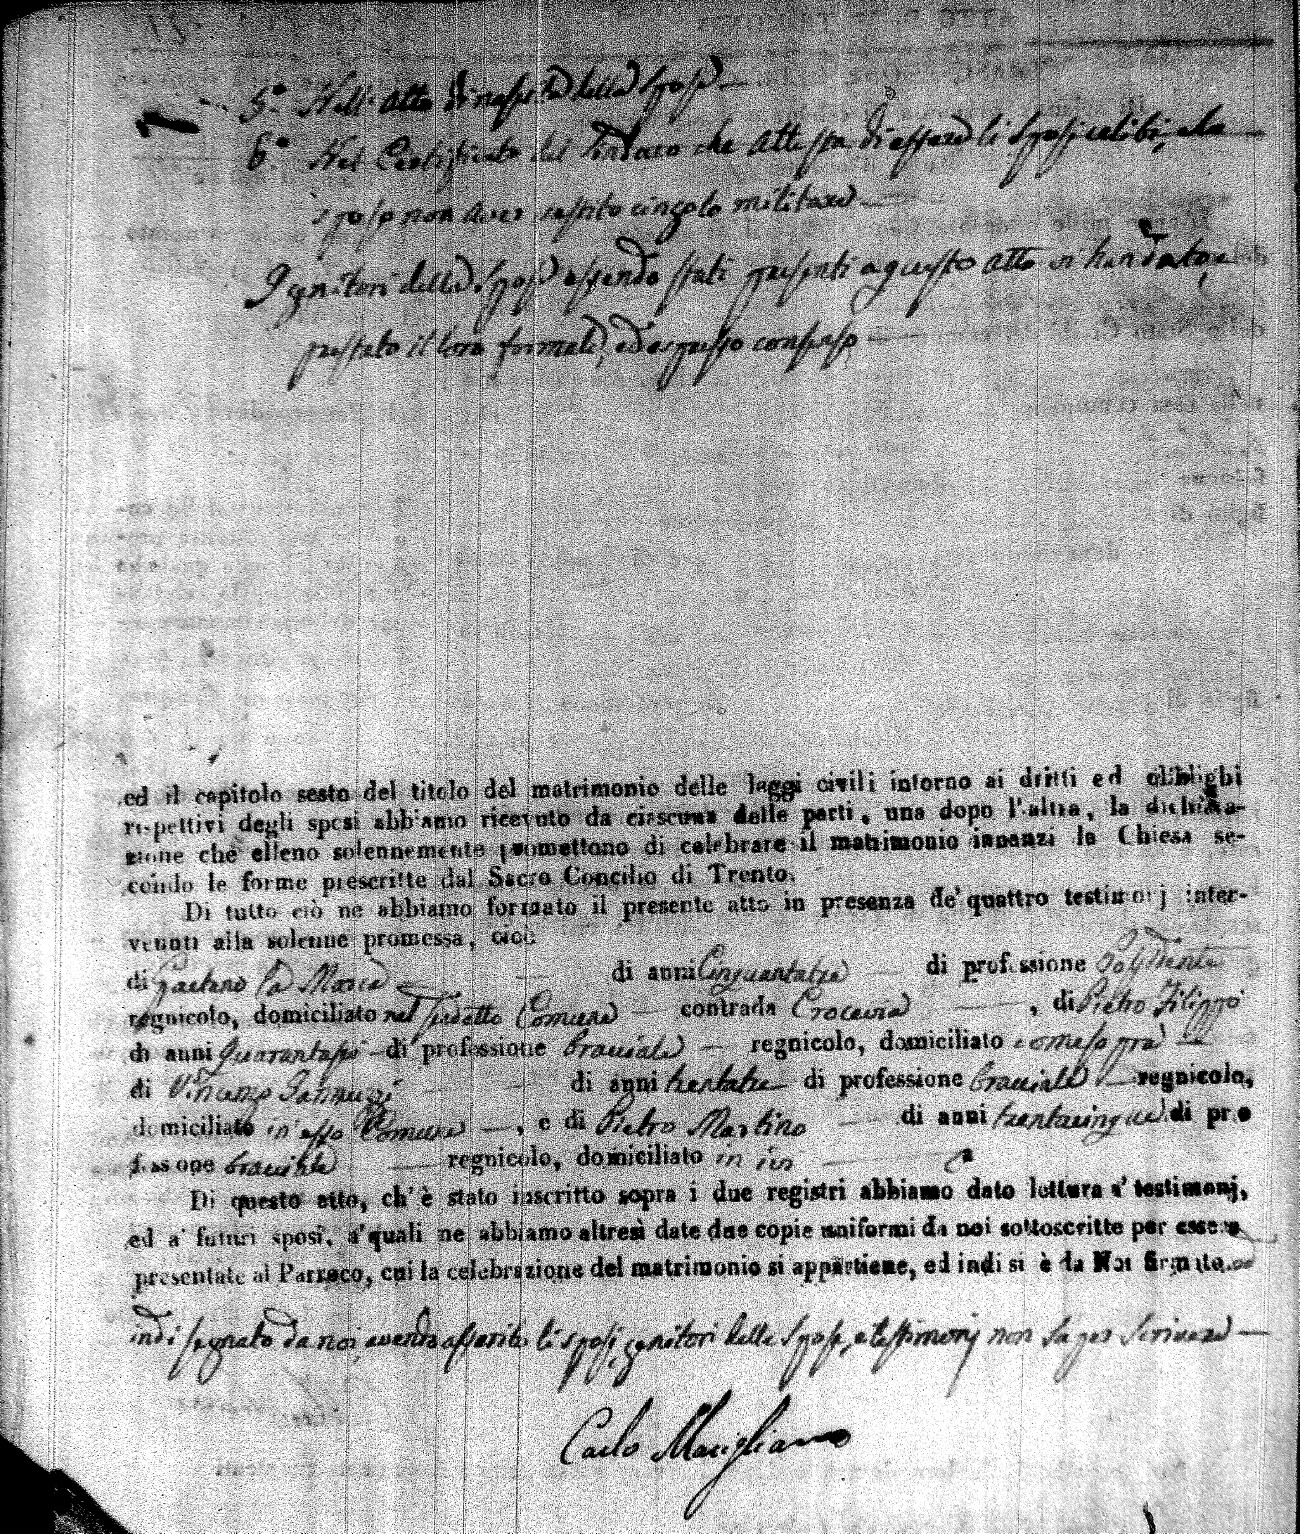 5.° Nell' atto di nascita della sposa
6.° Nel Certificato del Sindaco che attesta di essere li sposi celibi, e lo
sposo non aver cinto cingolo militare
I genitori della sposa essendo stati presenti a questo atto vi han dato, e
prestato il loro formale, ed espresso consenso
ed il capitolo sesto del titolo del matrimonio delle leggi civili intorno ai dritti ed obblighi
rispettivi degli sposi abbiamo ricevuto da ciascuna delle parti, una dopo l'altra, la dichiara-
zione che elleno solennemente promettono di celebrare il matrimonio innanzi la Chiesa se-
condo le forme prescritte dal Sacro Concilio di Trento.
Di tutto ciò ne abbiamo formato il presente atto in presenza de' quattro testimonj inter-
venuti alla solenne promessa, cioè
di Gaetano La Marca di anni Cinquantatre di professione
regnicolo, domiciliato nel sudetto Comune contrada Croceria , di Pietro Filippo
di anni Quarantasei di professione bracciale regnicolo, domiciliato come sopra
di Vincenzo Iannuzzi di anni trentatre di professione bracciale regnicolo,
domiciliato in esso Comune , e di Pietro Martino di anni trentacinque di pro
fessione bracciale regnicolo, domiciliato in
Di questo atto, ch' è stato inscritto sopra i due registri abbiamo dato lettura a' testimonj,
ed a' futuri sposi, a' quali ne abbiamo altresì date due copie uniformi da noi sottoscritte per essere
presentate al Parroco, cui la celebrazione del matrimonio si appartiene, ed indi si è da Noi firmato
indi segnato da noi avendo asserito li sposi, genitori della sposa, e testimonj non saper scrivere
Carlo Marigliano